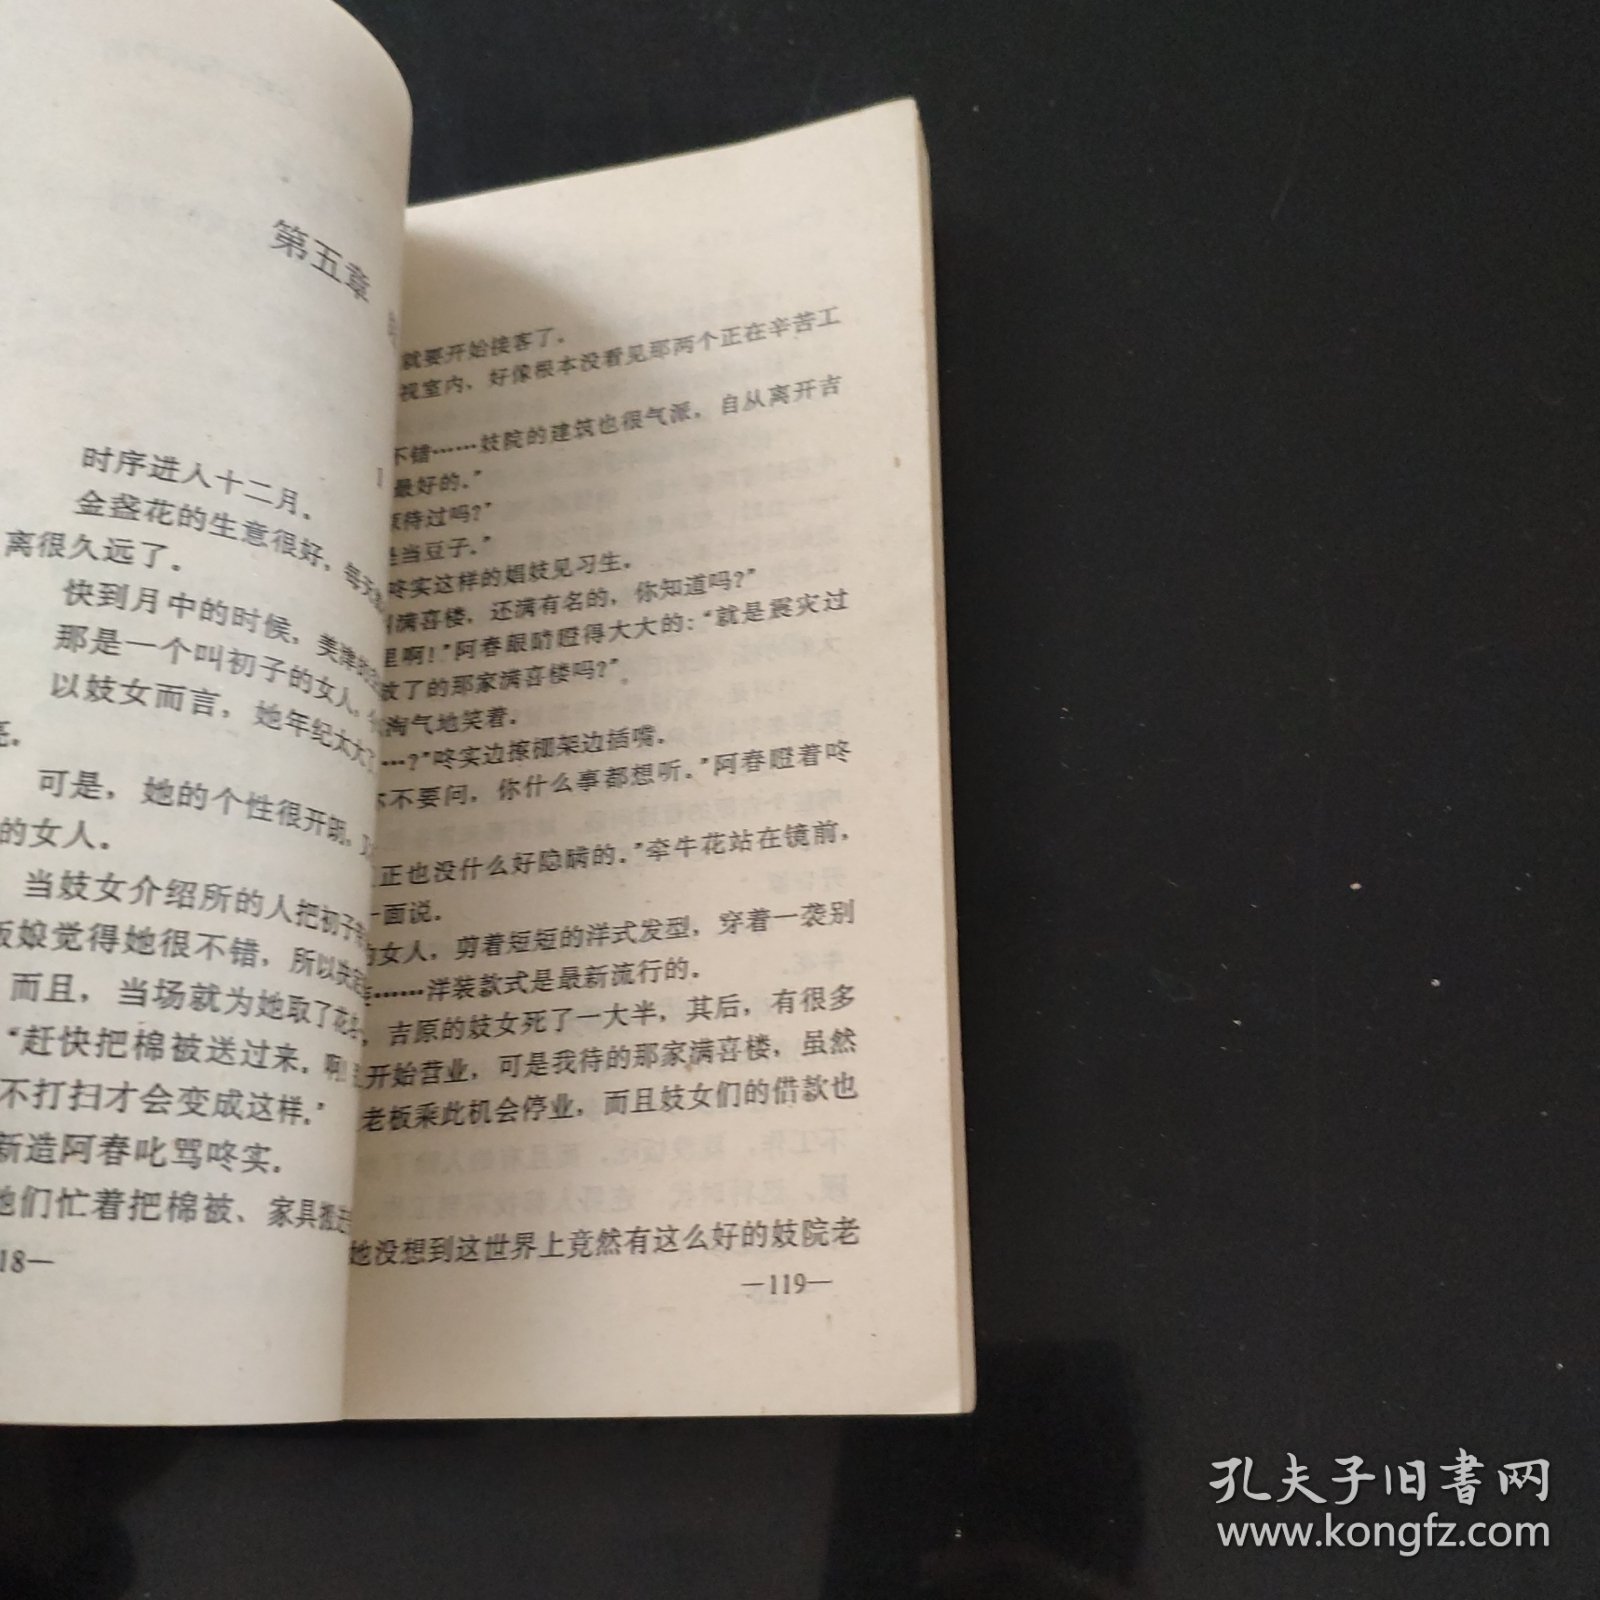 第五章
时序进入十二月。
金盏花的生意很好，每天
离很久远了。
快到月中的时候，美津的
那是一个叫初子的女人，
以妓女而言，她年纪太大了
亮。
可是，她的个性很开朗，
的女人。
当妓女介绍所的人把初子
板娘觉得她很不错，所以决定
而且，当场就为她取了花名
“赶快把棉被送过来。啊！
不打扫才会变成这样。”
新造阿春叱骂咚实。
她们忙着把棉被、家具搬进
18—
就要开始接客了。
视室内，好像根本没看见那两个正在辛苦工
不错……妓院的建筑也很气派，自从离开吉
最好的。”
待过吗？”
是当豆子。”
咚实这样的娼妓见习生。
叫满喜楼，还满有名的，你知道吗？”
里啊！”阿春眼睛瞪得大大的：“就是震灾过
放了的那家满喜楼吗？”
淘气地笑着。
…？”咚实边擦棚架边插嘴。
你不要问，你什么事都想听。”阿春瞪着咚
正也没什么好隐瞒的。”牵牛花站在镜前，
一面说。
的女人，剪着短短的洋式发型，穿着一袭别
……洋装款式是最新流行的。
，吉原的妓女死了一大半，其后，有很多
开始营业，可是我待的那家满喜楼，虽然
老板乘此机会停业，而且妓女们的借款也
她没想到这世界上竟然有这么好的妓院老
—119—
孔夫子旧书网
www.kongfz.com